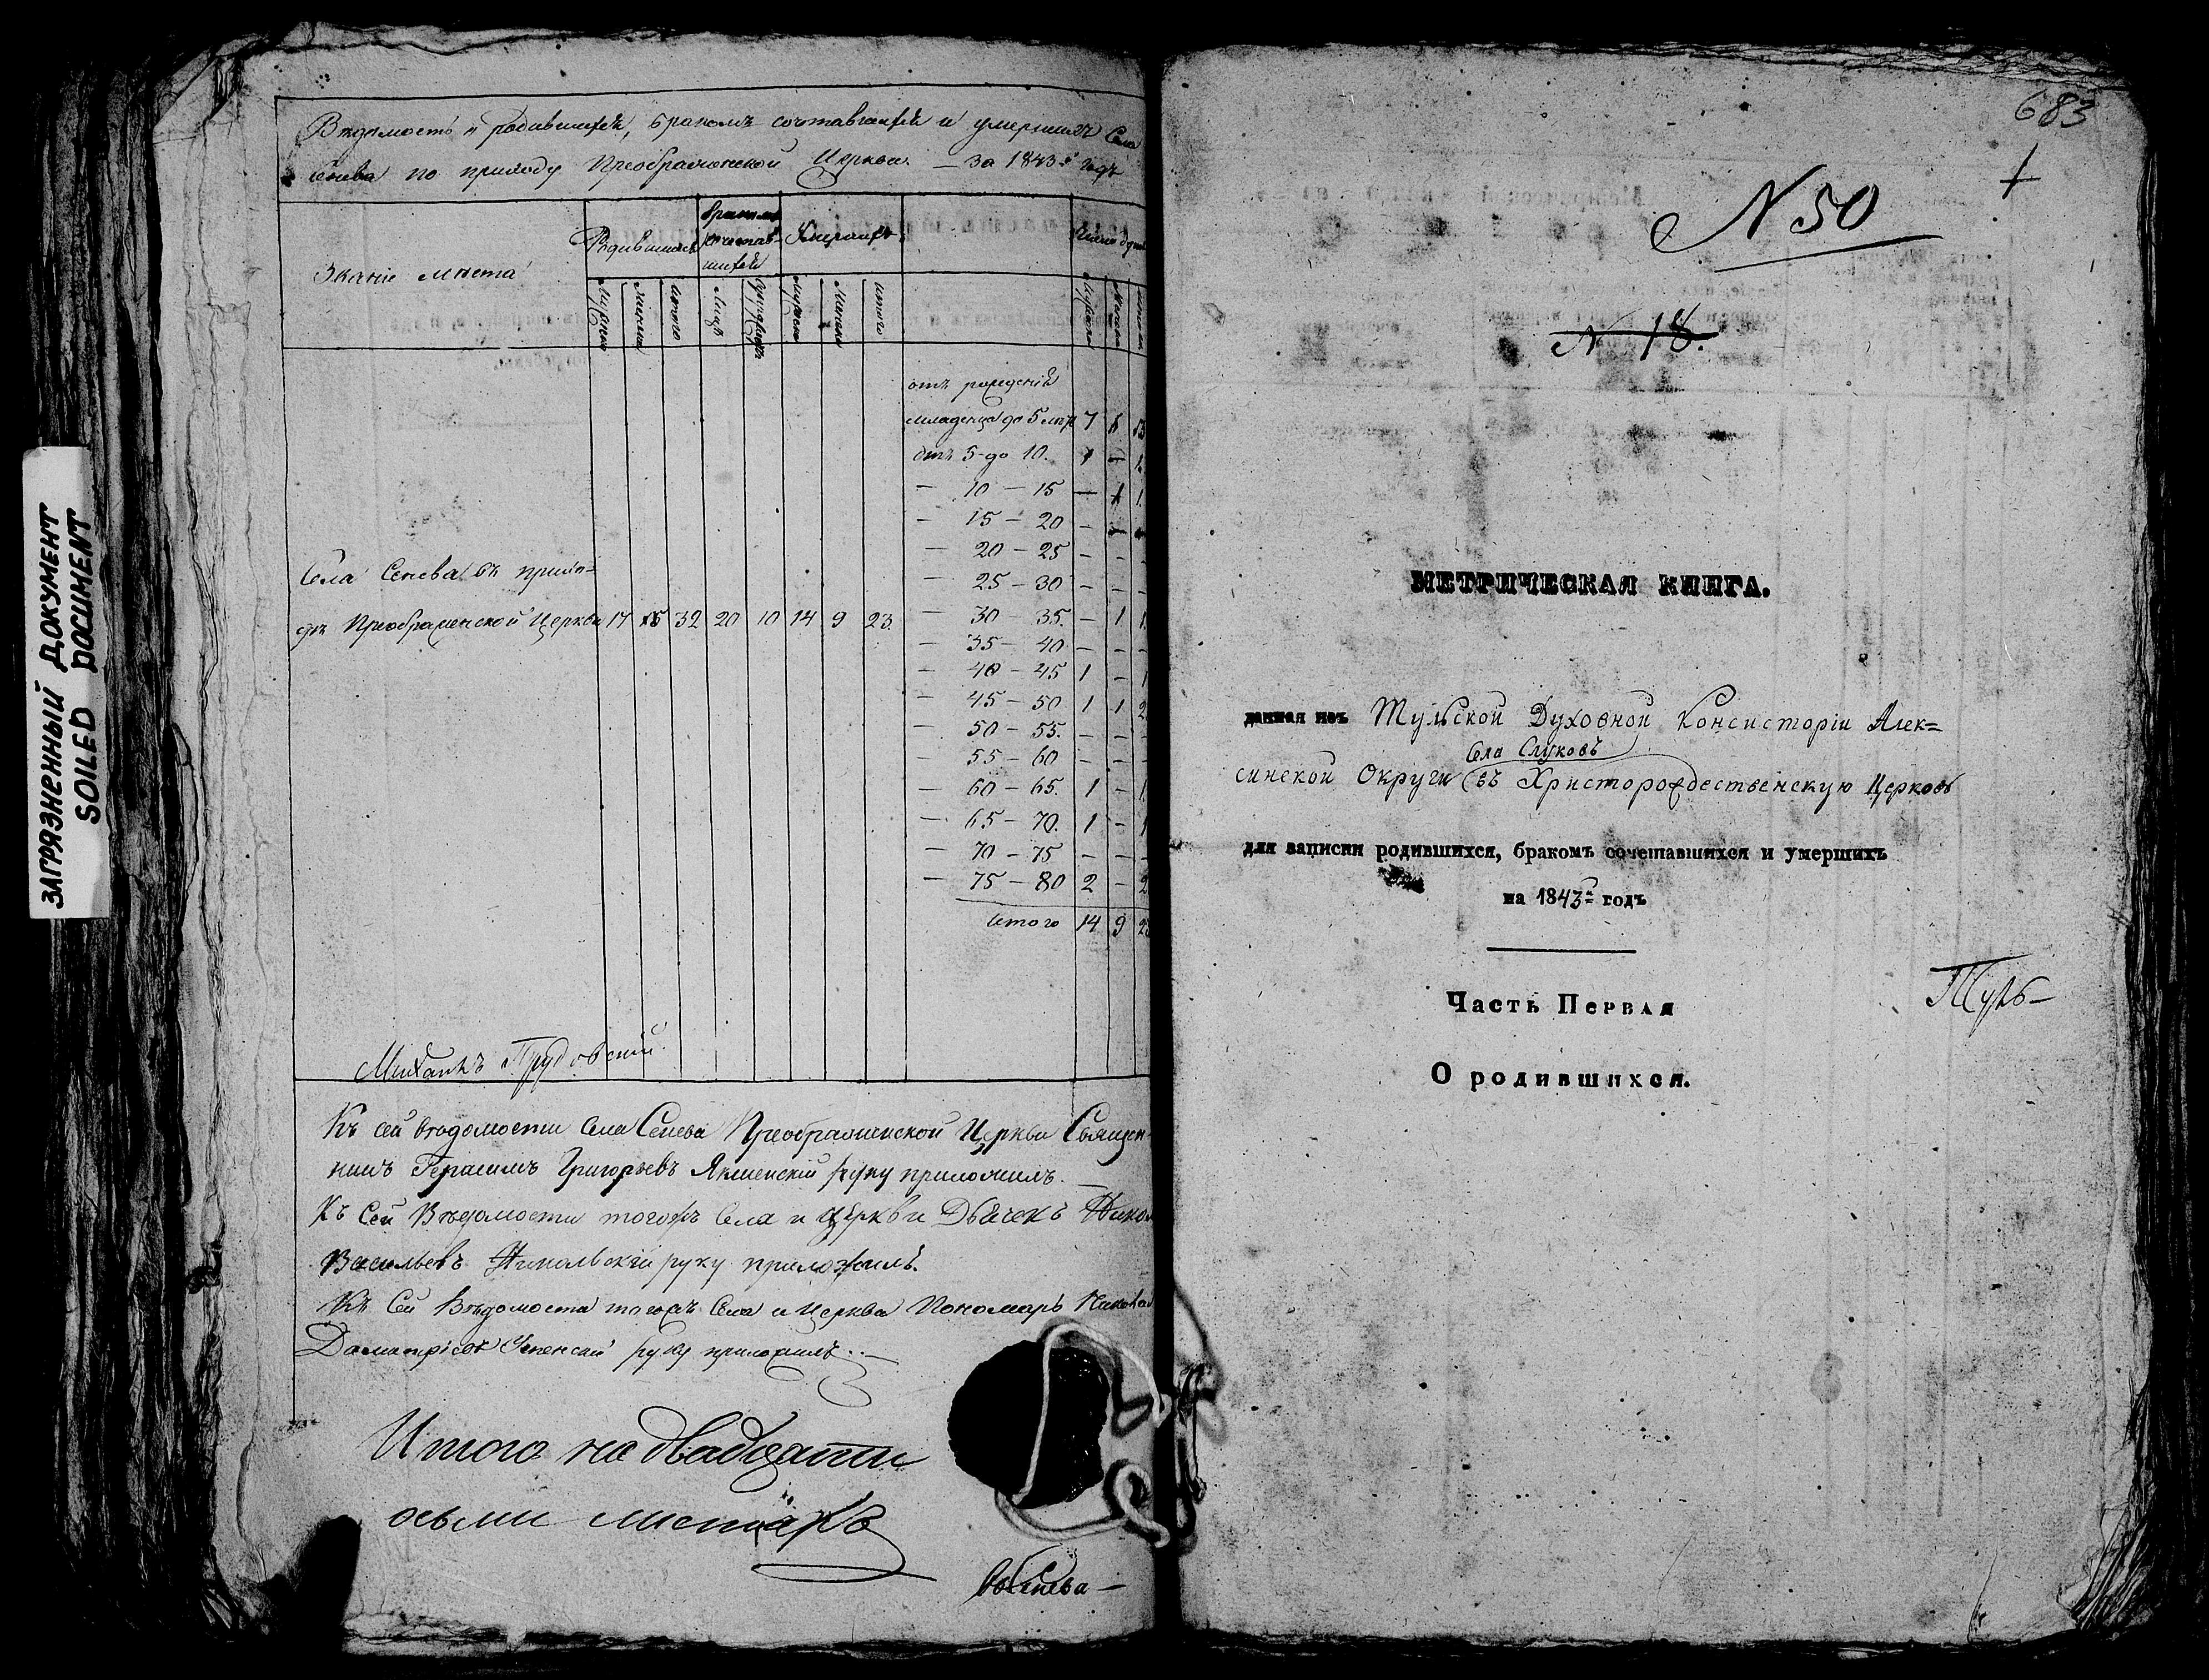 ЗАГРЯЗНЕННЫЙ ДОКУМЕНТ
SOILED DOCUMENT
Вѣдомость о родившихся, бракомъ сочетавшихся и умершихъ Села
Сенева по приходу Преображенской Церкви. — За 1843й годъ
Званіе мѣста
Родившихся
бракомъ сочетав-шихся
Умершихъ
Число душъ
Мужеска
Женска
итого
Лицъ
Супружествъ
Мужеска
Женска
итого
Мужеска
Женска
итого
отъ рожденія
младенца до 5 лѣтъ 7 6 13
отъ 5 до 10. 1 — 1.
— 10 — 15 — 1 1.
— 15 — 20 — — —
— 20 — 25 — — —
— 25 — 30 — — —
— 30 — 35. — 1 1.
— 35 — 40 — — —
— 40 — 45 1 — 1
— 45 — 50 1 1 2
— 50 — 55. — — —
— 55 — 60 — — —
— 60 — 65. 1 — 1
— 65 — 70. 1 — 1
— 70 — 75 — — —
— 75 — 80 2 — 2
итого 14 9 23
Села Сенева въ прихо-
дѣ Преображенской Церкви 17 15 32 20 10 14 9 23.
Михаилъ Трудовскій.
Къ сей вѣдомости Села Сенева Преображенской Церкви Священ-
никъ Герасимъ Григорьевъ руку приложилъ. —
Къ Сей Вѣдомости тогожъ Села и Церкви Дьячекъ
Васильевъ Никольскій руку приложилъ.
Къ Сей Вѣдомости тогожъ Села и Церкви Пономарь
Успенскій руку приложилъ. —
Итого на двадцати
осьми листахъ
683
N 50
N 18.
МЕТРИЧЕСКАЯ КНИГА.
данная изъ Тульской Духовной Консисторіи Алек=
Села Слуковъ
синской Округи въ Христорождественскую Церковь
для записки родившихся, бракомъ сочетавшихся и умершихъ
на 1843й годъ
Часть Первая
О родившихся.
Туль-